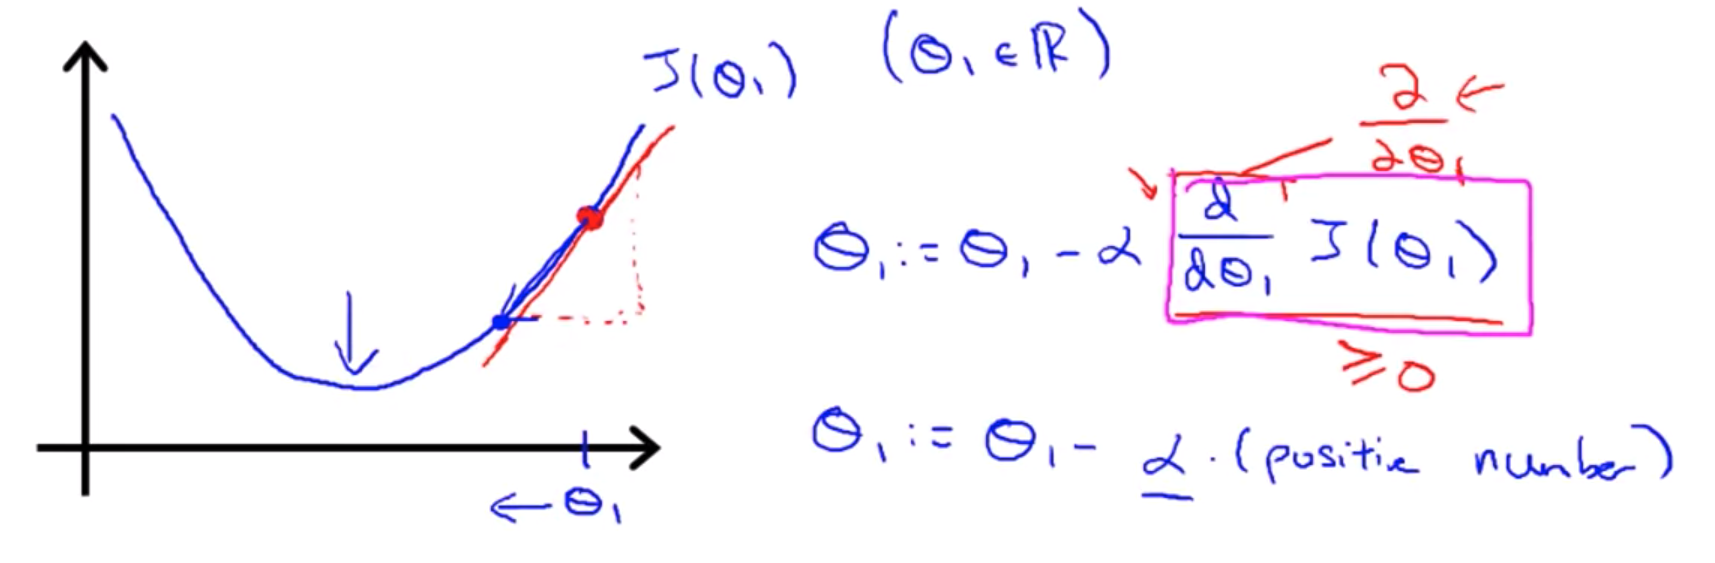 J(Θ₁) (Θ₁ ∈ ℝ)
∂ ←
∂Θ₁
Θ₁ := Θ₁ - α d/dΘ₁ J(Θ₁)
≥ 0
Θ₁ := Θ₁ - α · (positive number)
← Θ₁